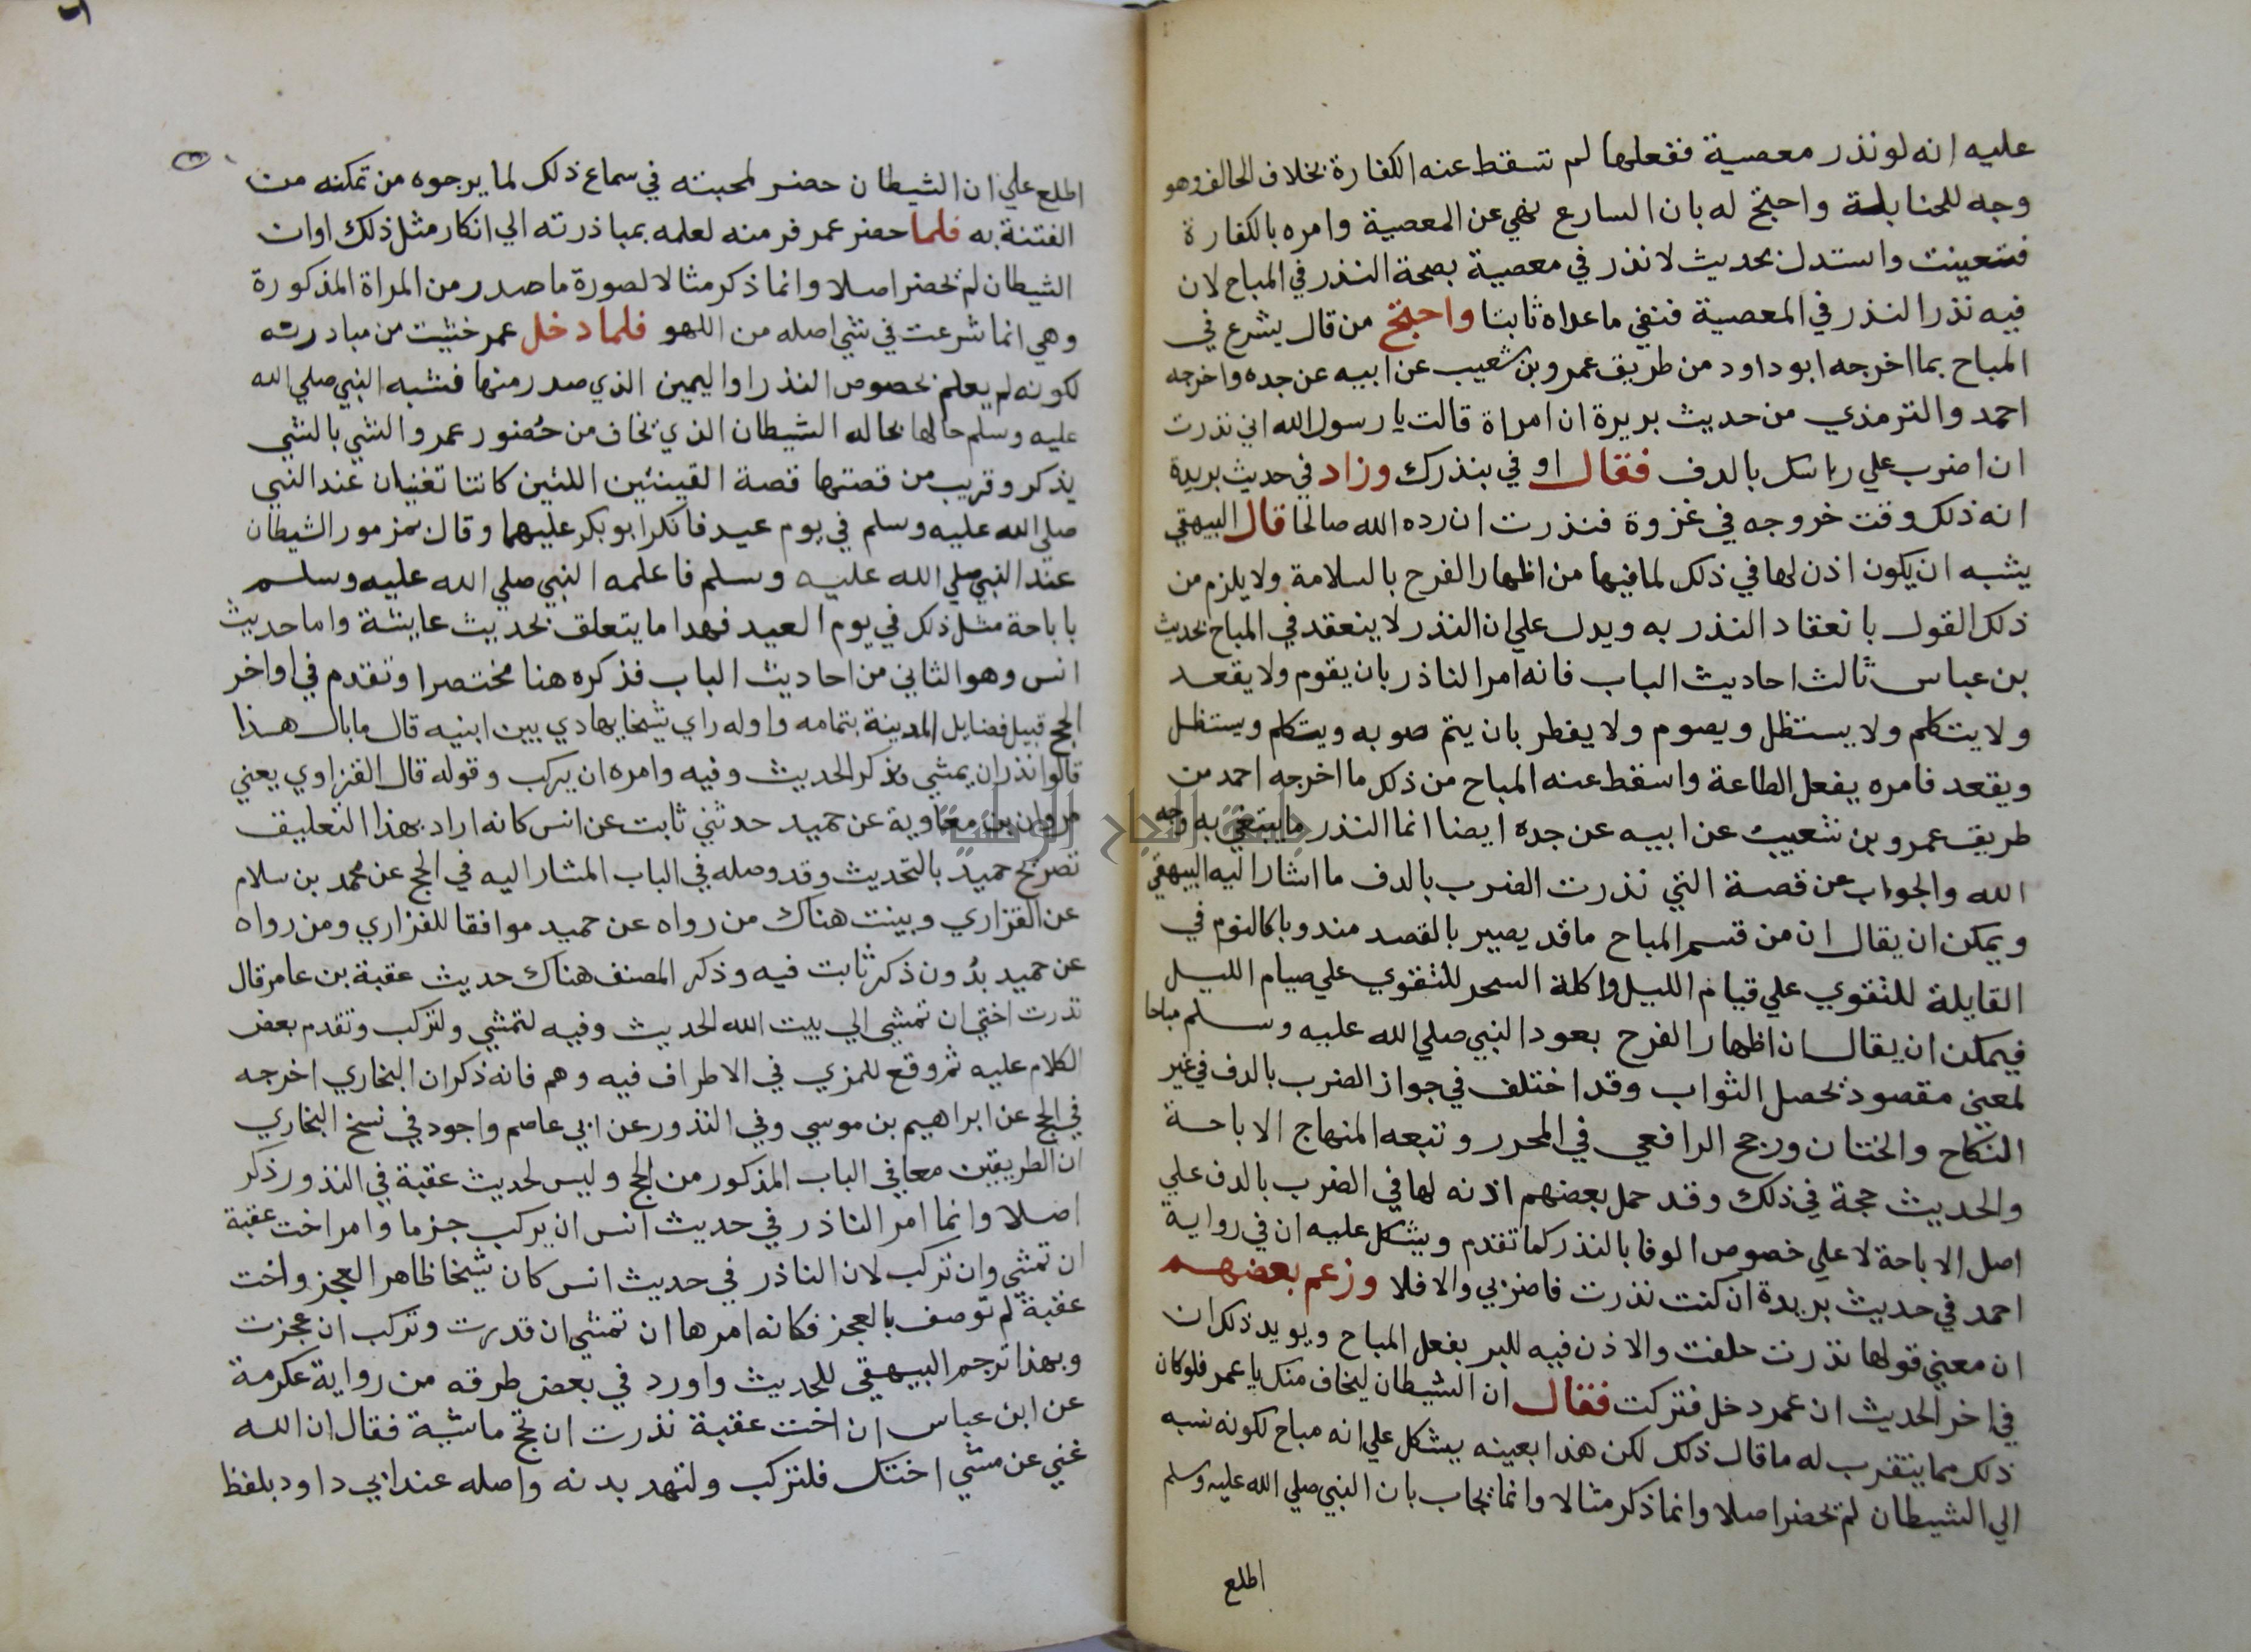 عليه انه لو نذر معصية ففعلها لم تسقط عنه الكفارة بخلاف الحالف وهو
وجه للحنابلة واحتج له بان السارع نهي عن المعصية وامره بالكفارة
فتعينت واستدل بحديث لا نذر في معصية بصحة النذر في المباح لان
فيه نذر النذر في المعصية فنفي ما عداه ثابتا واحتج من قال يشرع في
المباح بما اخرجه ابو داود من طريق عمرو بن شعيب عن ابيه عن جده واخرجه
احمد والترمذي من حديث بريرة ان امراة قالت يا رسول الله اني نذرت
ان اضرب علي راسك بالدف فقال اوفي بنذرك وزاد في حديث بريدة
انه ذلك وقت خروجه في غزوة فنذرت ان رده الله صالحا قال البيهقي
يشبه ان يكون اذن لها في ذلك لما فيها من اظهار الفرح بالسلامة ولا يلزم من
ذلك القول بانعقاد النذر به ويدل علي ان النذر لا ينعقد في المباح بحديث
بن عباس ثالث احاديث الباب فانه امر الناذر بان يقوم ولا يقعد
ولا يتكلم ولا يستظل ويصوم ولا يفطر بان يتم صوبه ويتكلم ويستظل
ويقعد فامره بفعل الطاعة واسقط عنه المباح من ذلك ما اخرجه احمد من
طريق عمرو بن شعيب عن ابيه عن جده ايضا انما النذر ما يبتغي به وجه
الله والجواب عن قصة التي نذرت الضرب بالدف ما اشار اليه البيهقي
ويمكن ان يقال ان من قسم المباح ما قد يصير بالقصد مندوبا كالنوم في
القايلة للتقوي علي قيام الليل واكلة السحر للتقوي علي صيام الليل
فيمكن ان يقال ان اظهار الفرح بعود النبي صلي الله عليه وسلم مباحا
لمعني مقصود يحصل الثواب وقد اختلف في جواز الضرب بالدف في غير
النكاح والختان ورجح الرافعي في المحرر وتبعه المنهاج الاباحة
والحديث حجة في ذلك وقد حمل بعضهم اذنه لها في الضرب بالدف علي
اصل الاباحة لا علي خصوص الوفا بالنذر كما تقدم ويشكل عليه ان في رواية
احمد في حديث بريدة ان كنت نذرت فاضربي والا فلا وزعم بعضهم
ان معني قولها نذرت حلفت والاذن فيه للبر بفعل المباح ويويد ذلك ان
في اخر الحديث ان عمر دخل فتركت فقال ان الشيطان ليخاف منك يا عمر فلو كان
ذلك مما يتقرب له ما قال ذلك لكن هذا بعينه يشكل علي انه مباح لكونه نسبه
الي الشيطان لم يحضر اصلا وانما ذكر مثالا وانما يجاب بان النبي صلي الله عليه وسلم
اطلع
اطلع علي ان الشيطان حضر لمحبته في سماع ذلك لما يرجوه من تمكنه من
الفتنة به فلما حضر عمر فر منه لعلمه بمباذرته الي انكار مثل ذلك اوان
الشيطان لم يحضر اصلا وانما ذكر مثالا لصورة ما صدر من المراة المذكورة
وهي انما شرعت في شي اصله من اللهو فلما دخل عمر خشيت من مبادرته
لكونه لم يعلم بخصوص النذر او اليمين الذي صدر منها فشبه النبي صلي الله
عليه وسلم حالها بحاله الشيطان الذي يخاف من حُضور عمر والشي بالشي
يذكر وقريب من قصتها قصة القينتين اللتين كانتا تغنيان عند النبي
صلي الله عليه وسلم في يوم عيد فانكر ابو بكر عليهما وقال بمزمور الشيطان
عند النبي صلي الله عليه وسلم فاعلمه النبي صلي الله عليه وسلم
باباحة مثل ذلك في يوم العيد فهدا ما يتعلق بحديث عايشة واما حديث
انس وهو الثاني من احاديث الباب فذكره هنا مختصرا وتقدم في اواخر
الحج قبيل فضايل المدينة بتمامه واوله راي شيخا يهادي بين ابنيه قال ما بال هذا
قالوا نذر ان يمشي وذكر الحديث وفيه وامره ان يركب وقوله قال الفزاوي يعني
مروان بن معاوية عن حميد حدثني ثابت عن انس كانه اراد بهذا التعليق
تصريح حميد بالتحديث وقد وصله في الباب المشار اليه في الحج عن محمد بن سلام
عن الفزاري وبينت هناك من رواه عن حميد موافقا للفزاري ومن رواه
عن حميد بدُون ذكر ثابت فيه وذكر المصنف هناك حديث عقبة بن عامر قال
نذرت اختي ان تمشي الي بيت الله الحديث وفيه لتمشي ولتركب وتقدم بعض
الكلام عليه ثم وقع للمزي في الاطراف فيه وهم فانه ذكر ان البخاري اخرجه
في الحج عن ابراهيم بن موسي وفي النذور عن ابي عاصم واجود في نسخ البخاري
ان الطريقين معا في الباب المذكور من الحج وليس لحديث عقبة في النذور ذكر
اصلا وانما امر الناذر في حديث انس ان يركب جزما وامر اخت عقبة
ان تمشي وان تركب لان الناذر في حديث انس كان شيخا ظاهر العجز واخت
عقبة لم توصف بالعجز فكانه امرها ان تمشي ان قدرت وتركب ان عجزت
وبهذا ترجم البيهقي للحديث واورد في بعض طرقه من رواية عكرمة
عن ابن عباس ان اخت عقبة نذرت ان تحج ماشية فقال ان الله
غني عن مشي اختك فلتركب ولتهد بدنه واصله عند ابي داود بلفظ
جامعة النجاح الوطنية